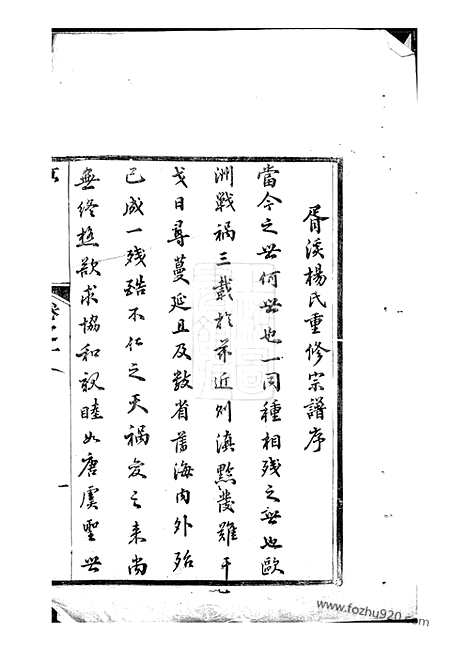 胥溪楊氏重修宗譜序
當今之世何世也一同種相殘之世也歐
洲戰禍三載於茲近則滇黔發難干
戈日尋蔓延且及數省蓄海内外殆
已成一殘酷不仁之天禍變之來尚
無終極欲求協和親睦如唐虞聖世
卷之一
一
www.fozhu920.com